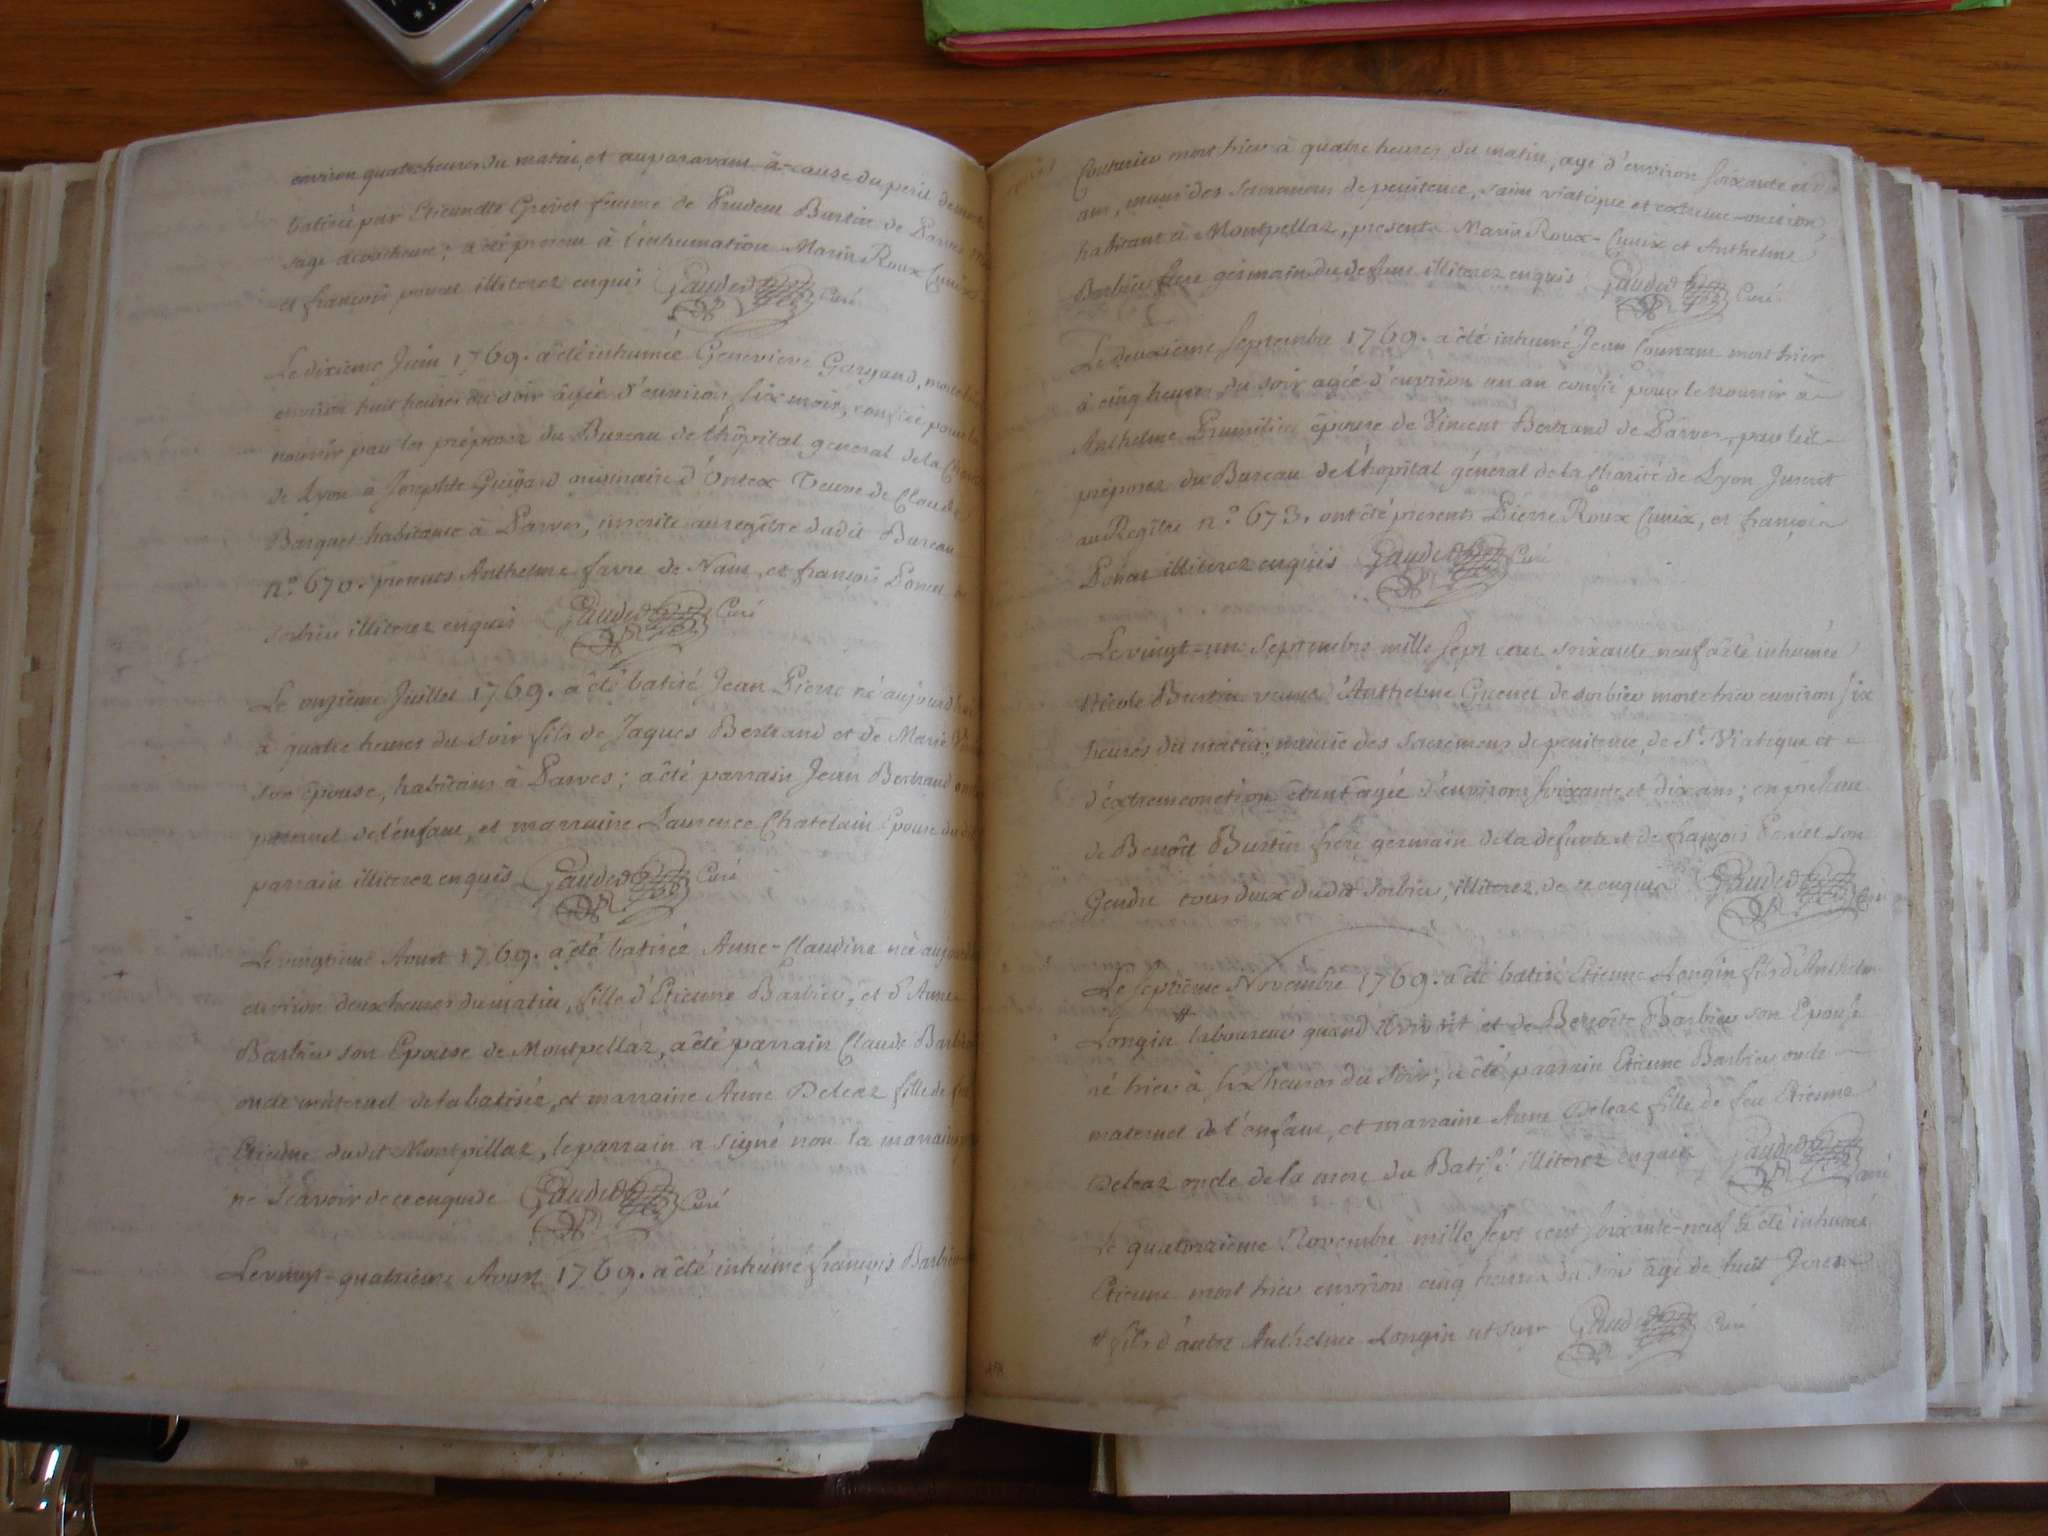 environ quatre heures du matin, et auparavant à cause du peril de mort
batisée par Etiennette Grevet femme de Prudent Burtin de Parves
sage ; à été present à l'inhumation Marin Roux Cunix
et françois poncet illiterez enquis Gaudet Curé
Le dixieme Juin 1769. a été inhumée Geneviéve morte hier
environ huit heures du soir âgée d'environ six mois, confiée pour la
nourrir par les préposez du Bureau de l'hôpital general de la Charité
de Lyon à Josephte Guigard originaire d'Ontex Veuve de Claude
Barquet habitante à Parves, inscrite au regître dudit Bureau
n.º 670. presents Anthelme favre de Nant, et françois Poncet de
sorbieu illiterez enquis Gaudet Curé
Le onzième Juillet 1769. a été batisé Jean Pierre né aujourd'hui
à quatre heures du soir fils de Jaques Bertrand et de Marie
son épouse, habitans à Parves ; a été parrain Jean Bertrand oncle
paternel de l'enfant, et marraine Laurence Chatelain Epouse du dit
parrain illiterez enquis Gaudet Curé
Le vingtième Aoust 1769. a été batisée Anne-Claudine née aujourd'hui
environ deux heures du matin, fille d'Etienne Barbier, et d'Anne
Barbier son Epouse de Montpellaz, a été parrain Claude Barbier
oncle maternel de la batisée, et marraine Anne Deleaz fille de feu
Etienne dudit Montpellaz, le parrain a signé non la marraine
ne scavoir de ce enquise Gaudet Curé
Le vingt-quatrième Aoust 1769. a été inhumé françois Barbier
Couturier mort hier à quatre heures du matin, age d'environ soixante et
ans, muni des sacremens de penitence, saint viatique et extreme-onction,
habitant à Montpellaz, presents Marin Roux-Cunix et Anthelme
Barbier frere germain du defunt illiterez enquis Gaudet Curé
Le deuxième Septembre 1769. a été inhumé Jean mort hier
à cinq heures du soir agée d'environ un an confié pour le nourrir à
Anthelme épouse de Vincent Bertrand de Parves, par les
préposez du Bureau de l'hopital général de la Charité de Lyon Inscrit
au Regître n.º 673. ont été presents Pierre Roux Cunix, et françois
Poncet illiterez enquis Gaudet Curé
Le vingt-un Septembre mille sept cent soixante neuf a été inhumée
Nicole Burtin veuve d'Anthelme de sorbieu morte hier environ six
heures du matin, munie des sacremens de penitence, de S.t Viatique et
d'extremeonction étant âgée d'environ soixante et dix ans ; en présence
de Benoît Burtin frère germain de la defunte et de françois Poncet son
Gendre tous deux dudit sorbieu, illiterez de ce enquis Gaudet Curé
Le septième Novembre 1769. a été batisé Etienne Longin fils d'Anthelme
Longin # laboureur quand il vivoit et de Benoîte Barbier son Epouse
né hier à six heures du soir, a été parrain Etienne Barbier oncle
maternel de l'enfant, et marraine Anne Deleaz fille de feu Etienne
Deleaz oncle de la mere du Batisé illiterez enquis Gaudet Curé
Le quatorzième Novembre mille sept cent soixante-neuf a été inhumé
Etienne mort hier environ cinq heures du soir âgé de huit Jours
# fils d'autre Anthelme Longin ut supr Gaudet Curé